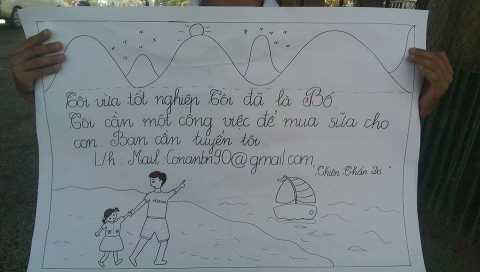 Tôi vừa tốt nghiệp Tôi đã là Bố
Tôi cần một công việc để mua sữa cho
con Bạn cần tuyển tôi
L/h: Mail Conantn90@gmail.com
"Chiến Thần